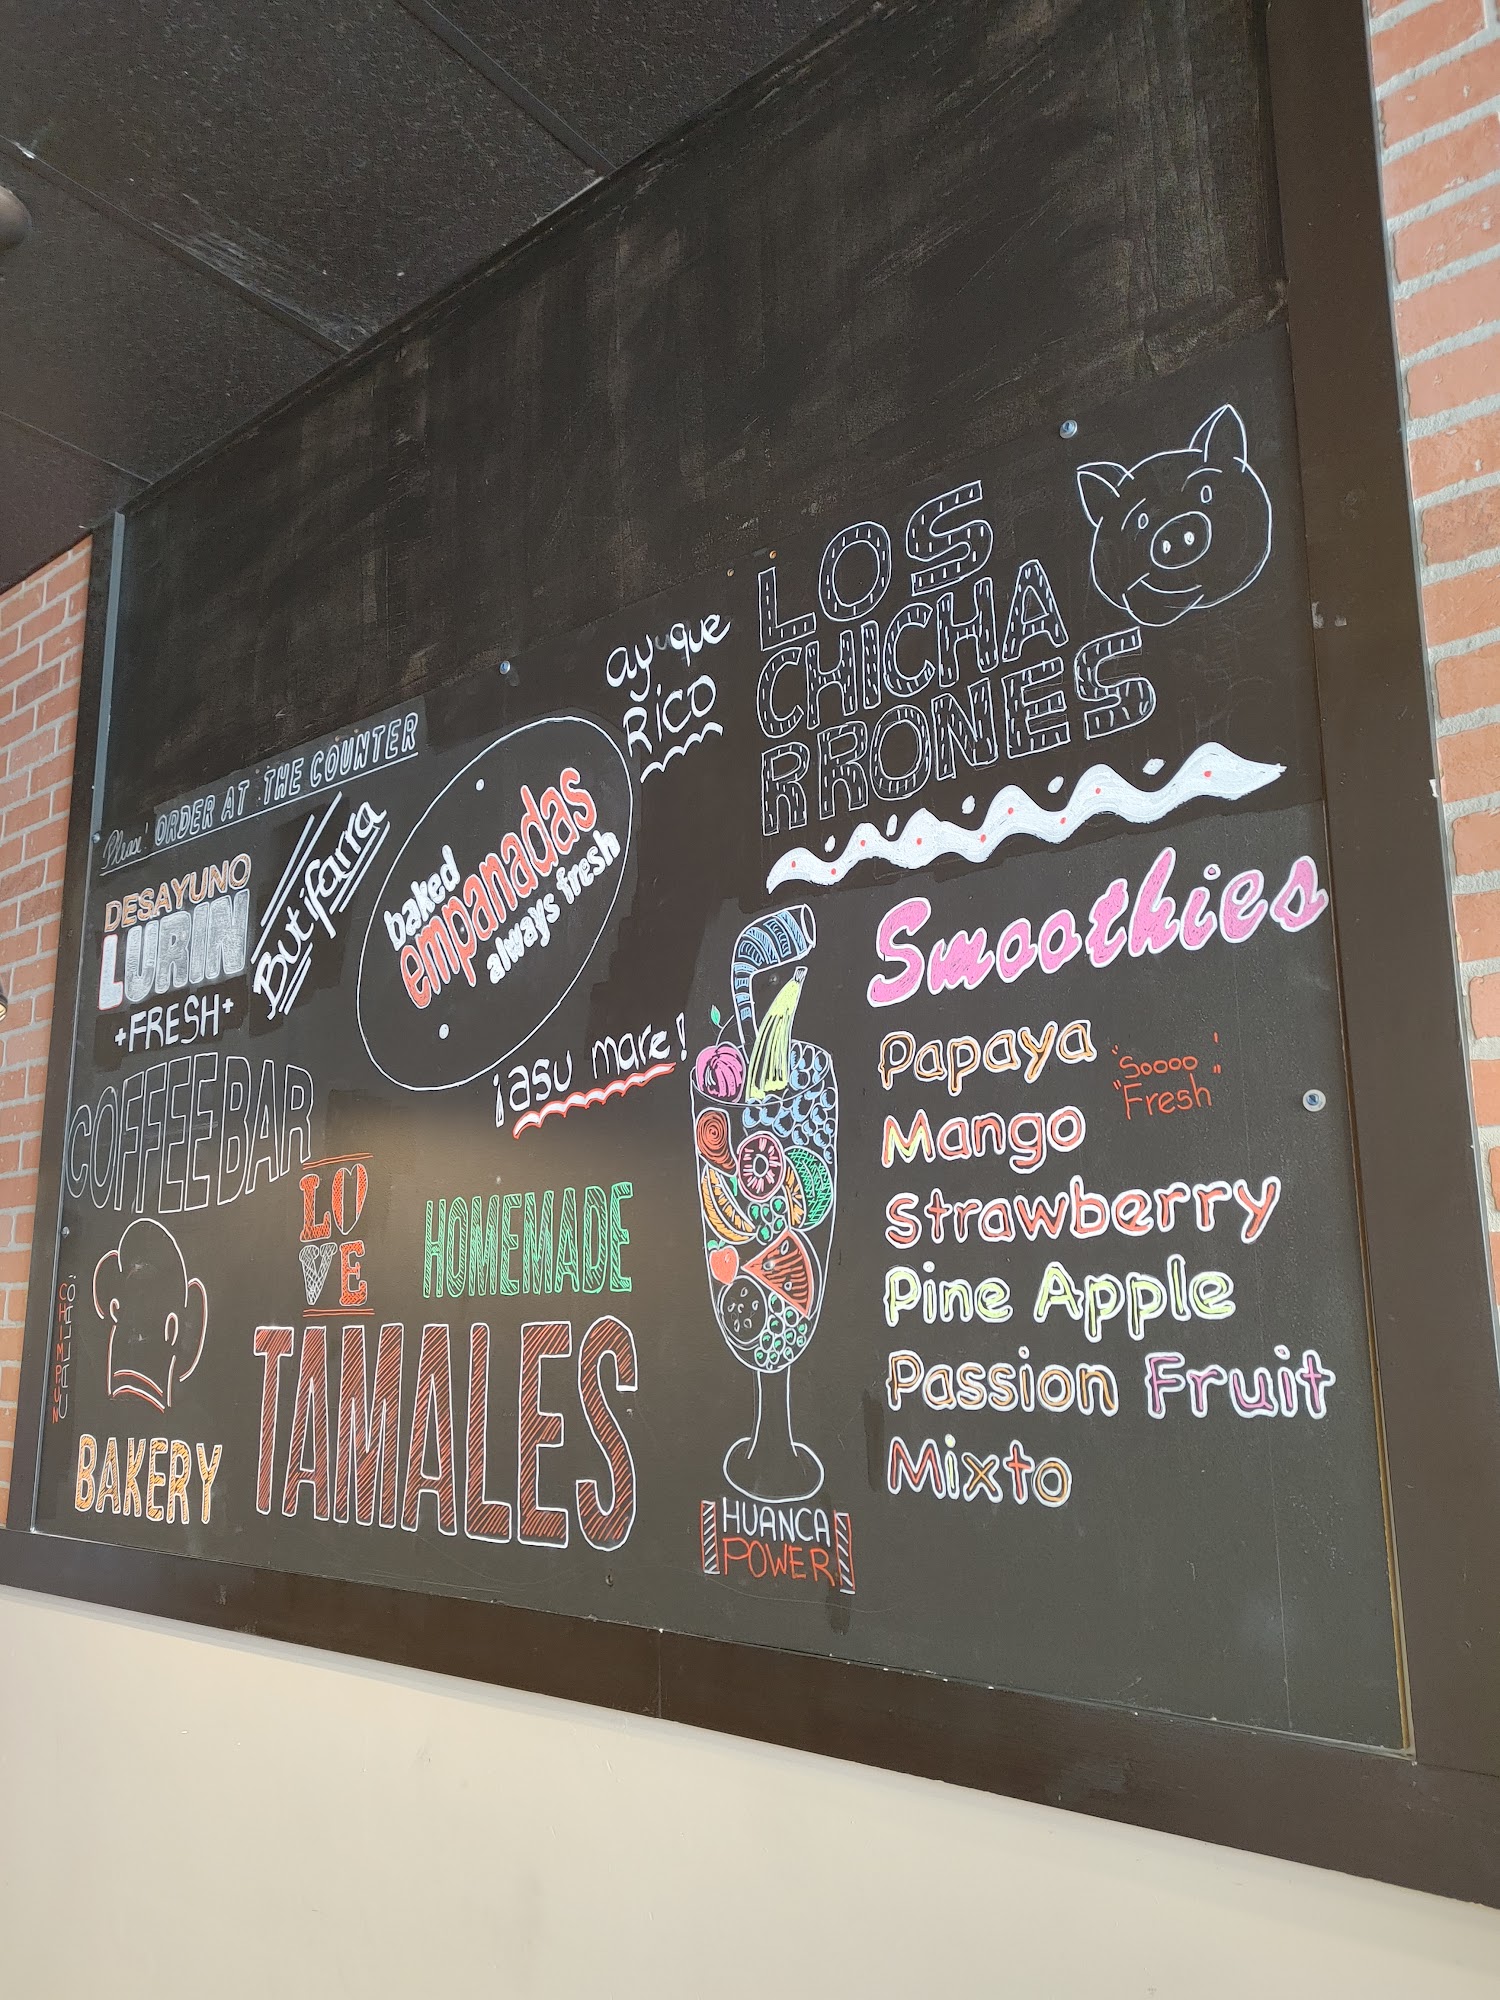 Please! ORDER AT THE COUNTER
DESAYUNO
LURIN
+FRESH+
Butifarra
baked
empanadas
always fresh
ayuque
RICO
LOS
CHICHA
RRONES
¡asu mare!
COFFEE BAR
LO
VE
HOMEMADE
TAMALES
CHIMPUN
CALLAO!
BAKERY
HUANCA
POWER
Smoothies
Papaya
"Soooo'
"Fresh"
Mango
Strawberry
Pine Apple
Passion Fruit
Mixto